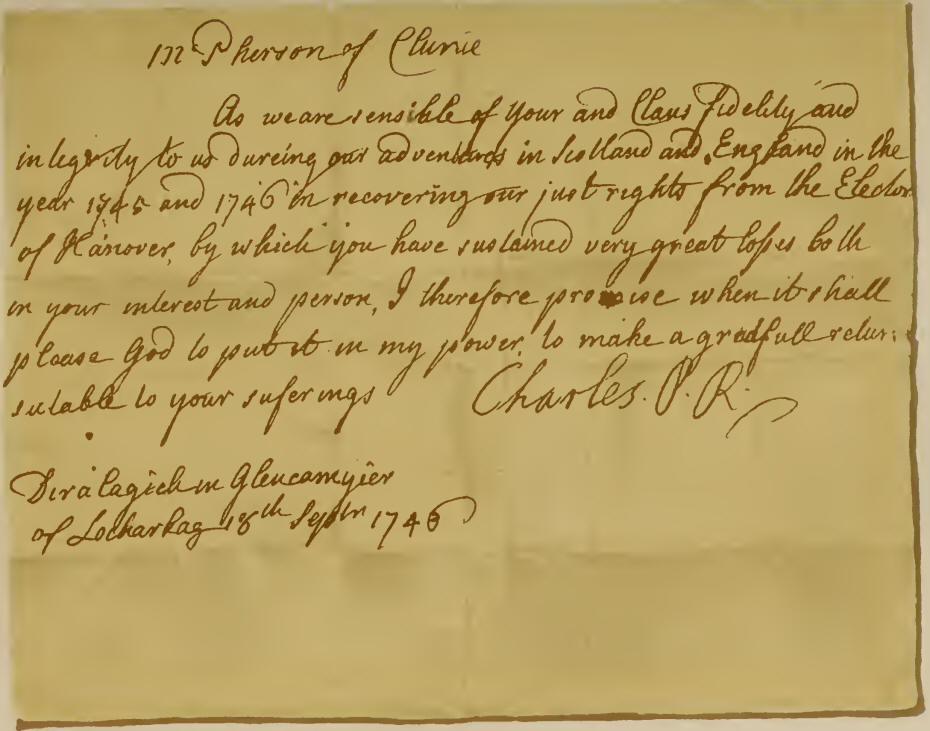 McPherson of Clunie
As we are sensible of your and Clans fidelity and
integrity to us dureing our adventures in Scotland and England in the
year 1745 and 1746 in recovering our just rights from the Elector
of Hanover, by which you have sustained very great losses both
in your interest and person, I therefore promise when it shall
please God to put it in my power, to make a gradfull return
sutable to your suferings
Charles. P. R.
Diralagich in Glencamyier
of Locharkag 18th Septr 1746